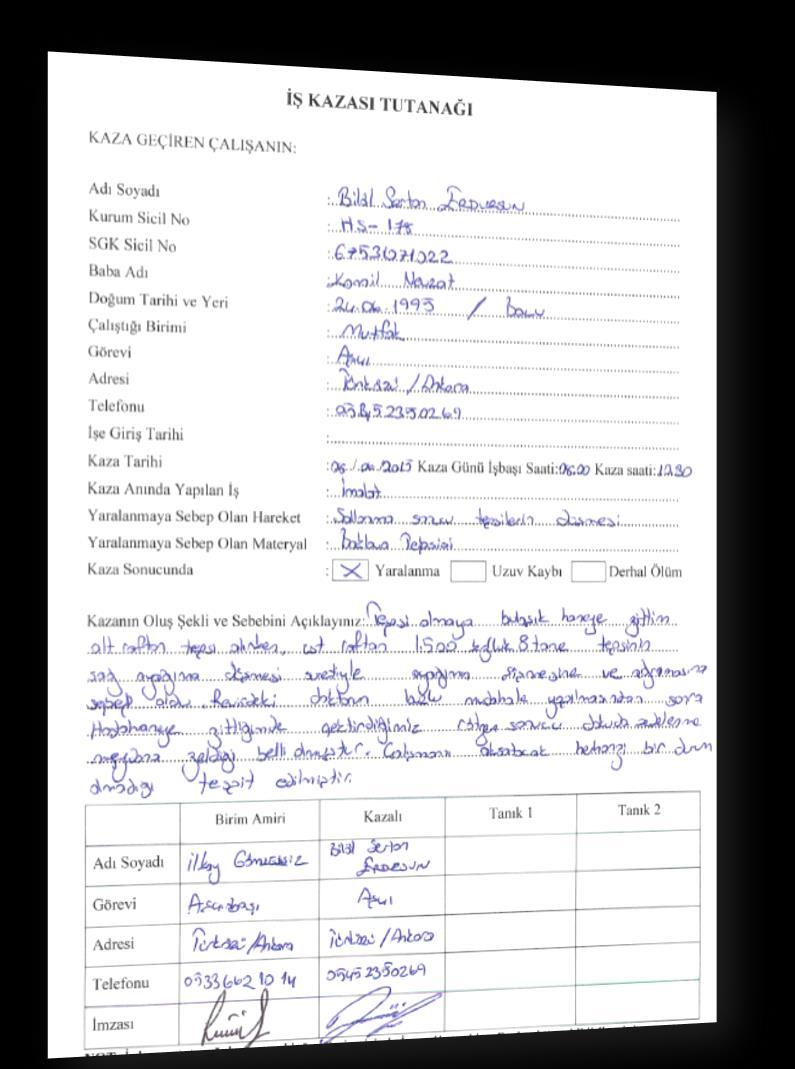 İŞ KAZASI TUTANAĞI
KAZA GEÇİREN ÇALIŞANIN:
Adı Soyadı : Bilal Sertan ERDURSUN
Kurum Sicil No : HS- 178
SGK Sicil No :
Baba Adı : Kamil Nevzat
Doğum Tarihi ve Yeri : / Bolu
Çalıştığı Birimi : Mutfak
Görevi : Aşçı
Adresi : Türksat / Ankara
Telefonu : 0545 2350269
İşe Giriş Tarihi :
Kaza Tarihi : 2015 Kaza Günü İşbaşı Saati: 06.00 Kaza saati: 12.30
Kaza Anında Yapılan İş : İmalat
Yaralanmaya Sebep Olan Hareket : Sallanma sonucu tepsilerin düşmesi
Yaralanmaya Sebep Olan Materyal : Baklava Tepsisi
Kaza Sonucunda : X Yaralanma Uzuv Kaybı Derhal Ölüm
Kazanın Oluş Şekli ve Sebebini Açıklayınız: Tepsi almaya bulaşık haneye gittim
alt raftan tepsi alırken, üst raftan 1,500 kğluk 8 tane tepsinin
sağ ayağıma düşmesi suretiyle ayağıma ve ağrımasına
sebep oldu. Revirdeki doktorun müdahale yapılmasından sora
Hastahaneye gittiğimde çektirdiğimiz röntgen sonucu
geldiği belli olmuştur. Çalışmamı aksatacak herhangi bir durum
olmadığı tespit edilmiştir.
Birim Amiri Kazalı Tanık 1 Tanık 2
Adı Soyadı İlkay Bilal Sertan ERDURSUN
Görevi Aşçıbaşı Aşçı
Adresi Türksat / Ankara Türksat / Ankara
Telefonu 0533 662 10 14 0545 2350269
İmzası